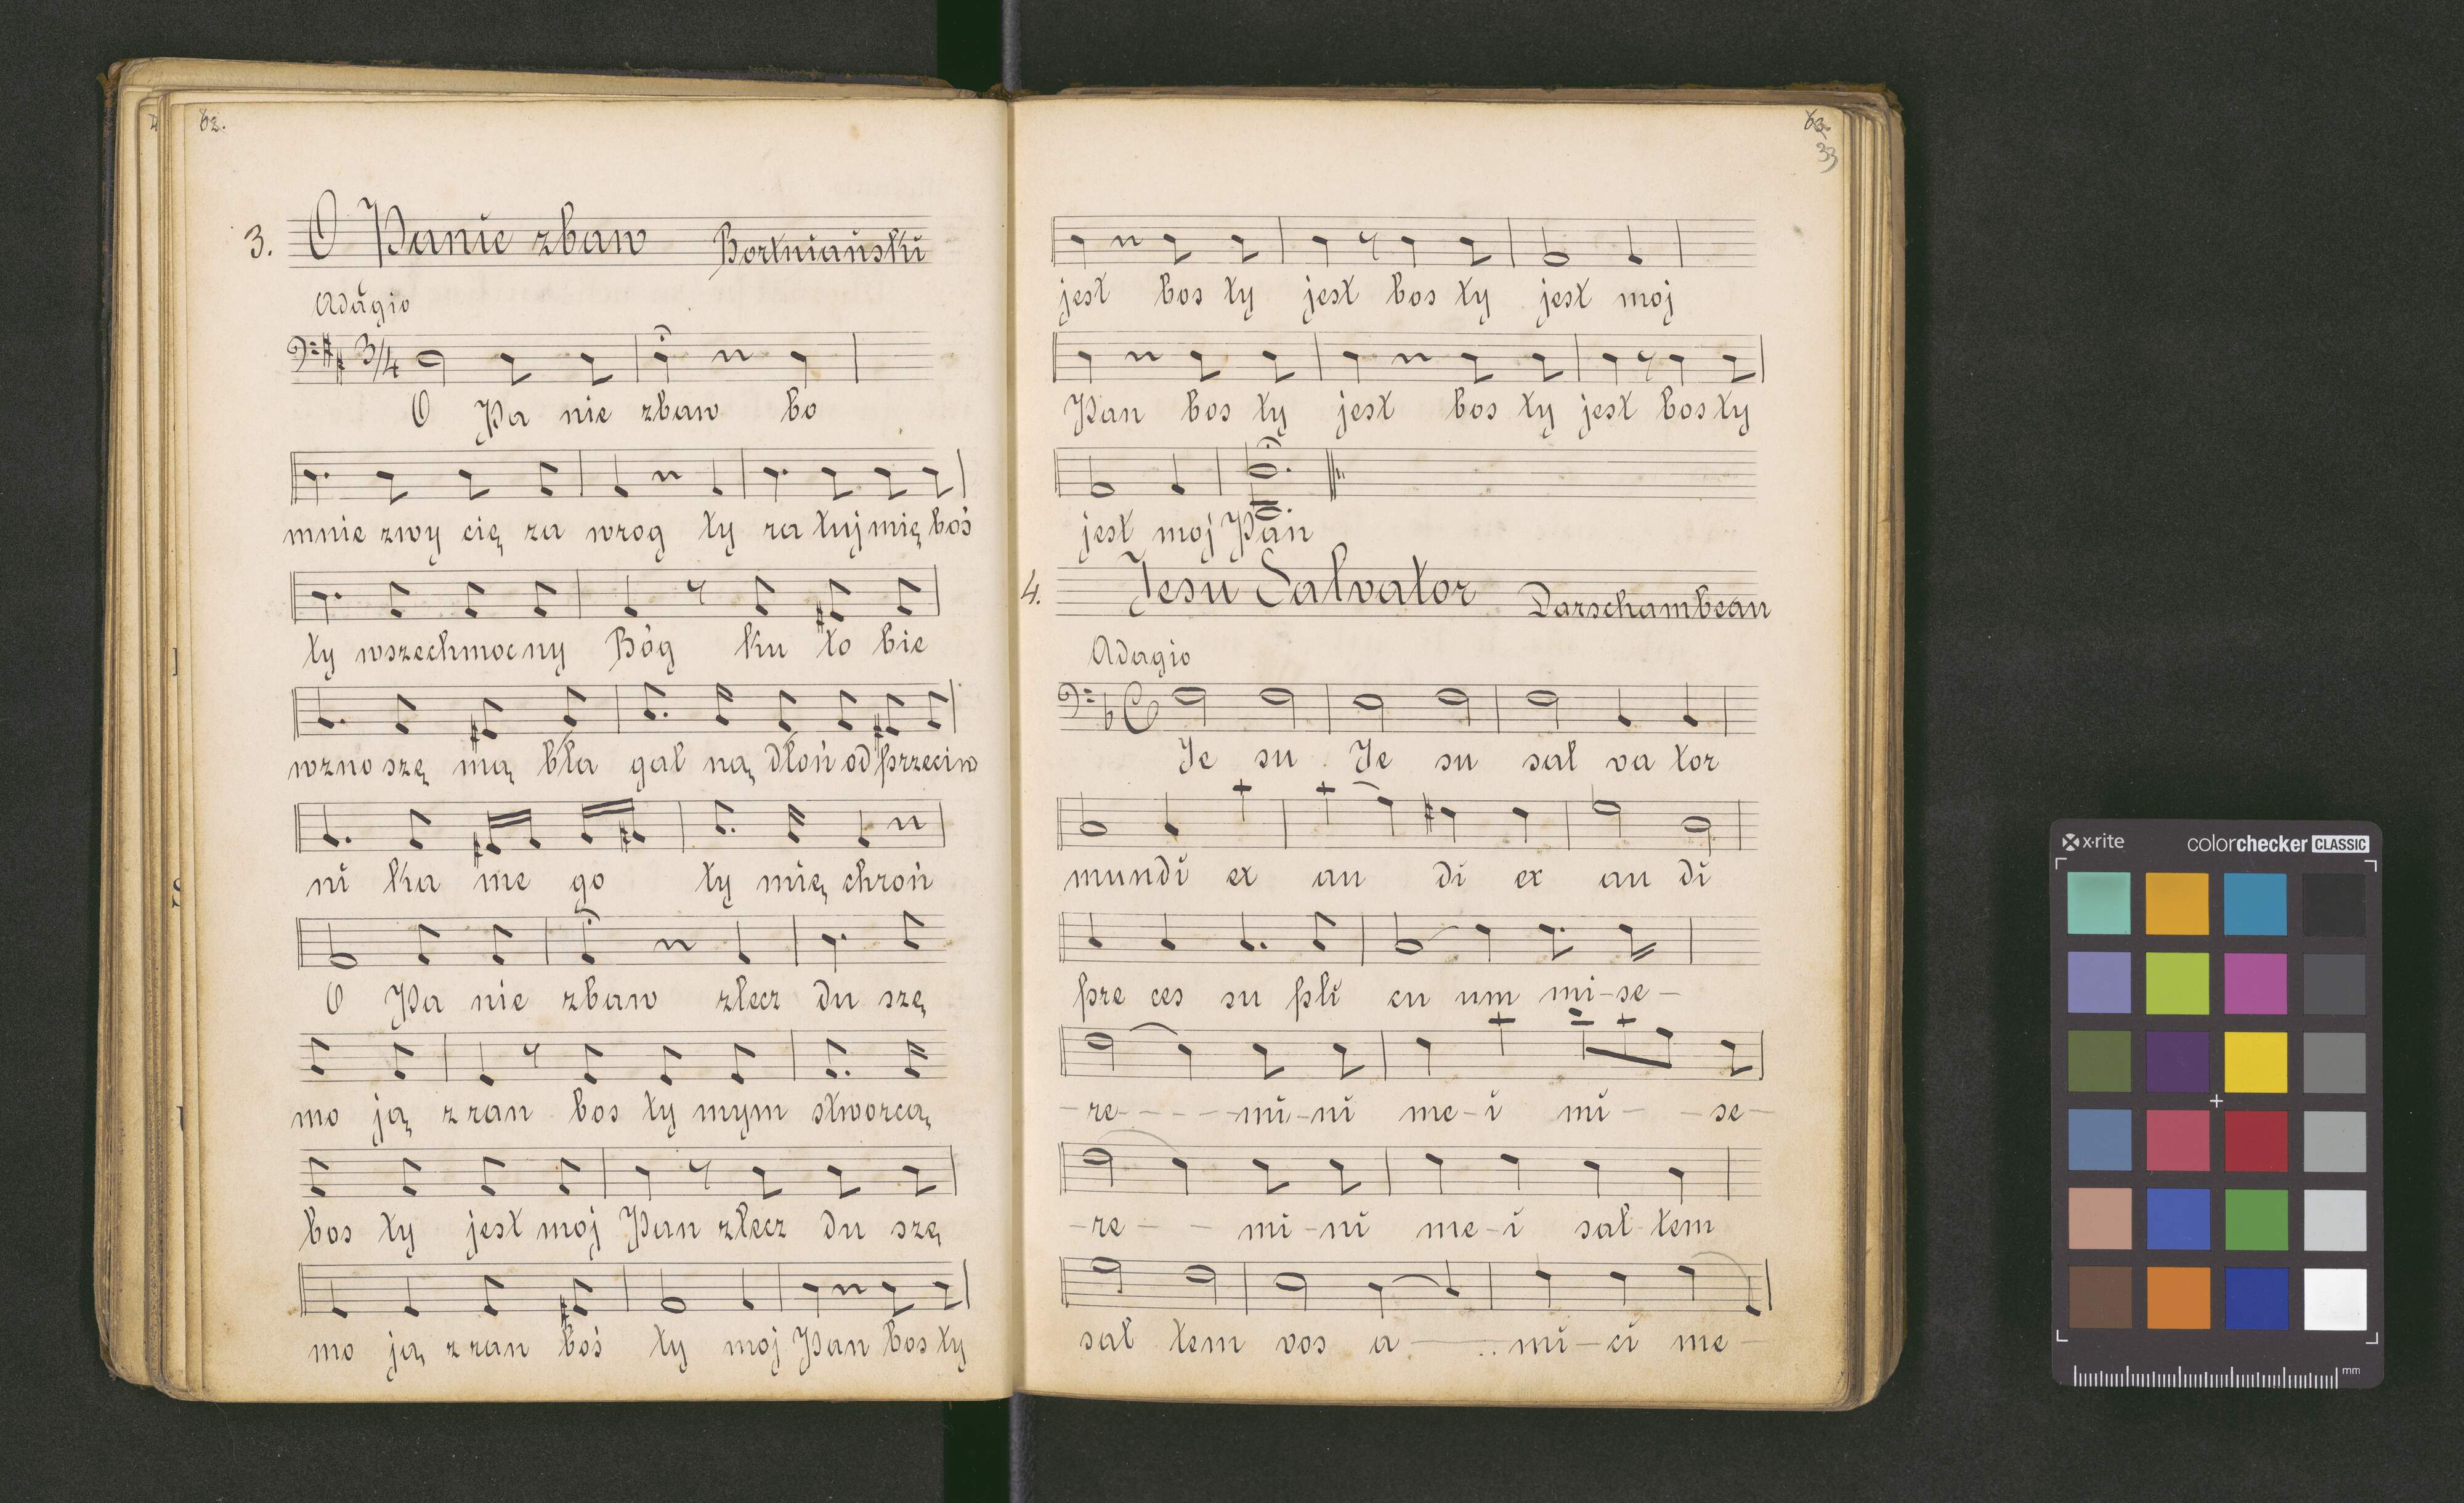 62.
3. O Panie zbaw Bortniański
Adagio
3/4
O Pa nie zbaw bo
mnie zwy cię za wrog ty ra tuj mię boś
ty wszechmoc ny Bóg ku to bie
wzno szę mą bła gal ną dłoń od przeciw
ni ka me go ty mię chroń
O Pa nie zbaw zlecz du szę
mo ją z ran bos ty mym stworcą
bos ty jest moj Pan zlecz du szę
mo ją z ran boś ty moj Pan bos ty
33
jest bos ty jest bos ty jest moj
Pan bos ty jest bos ty jest bos ty
jest moj Pan
4. Jesu Salvator Darschambeau
Adagio
Je su Je su sal va tor
mundi ex au di ex au di
pre ces su pli cu um mi-se-
-re----mi-ni me-i mi- -se-
-re- - mi-ni me-i sal-tem
sal tem vos a — mi-ci me-
x-rite colorchecker CLASSIC
mm